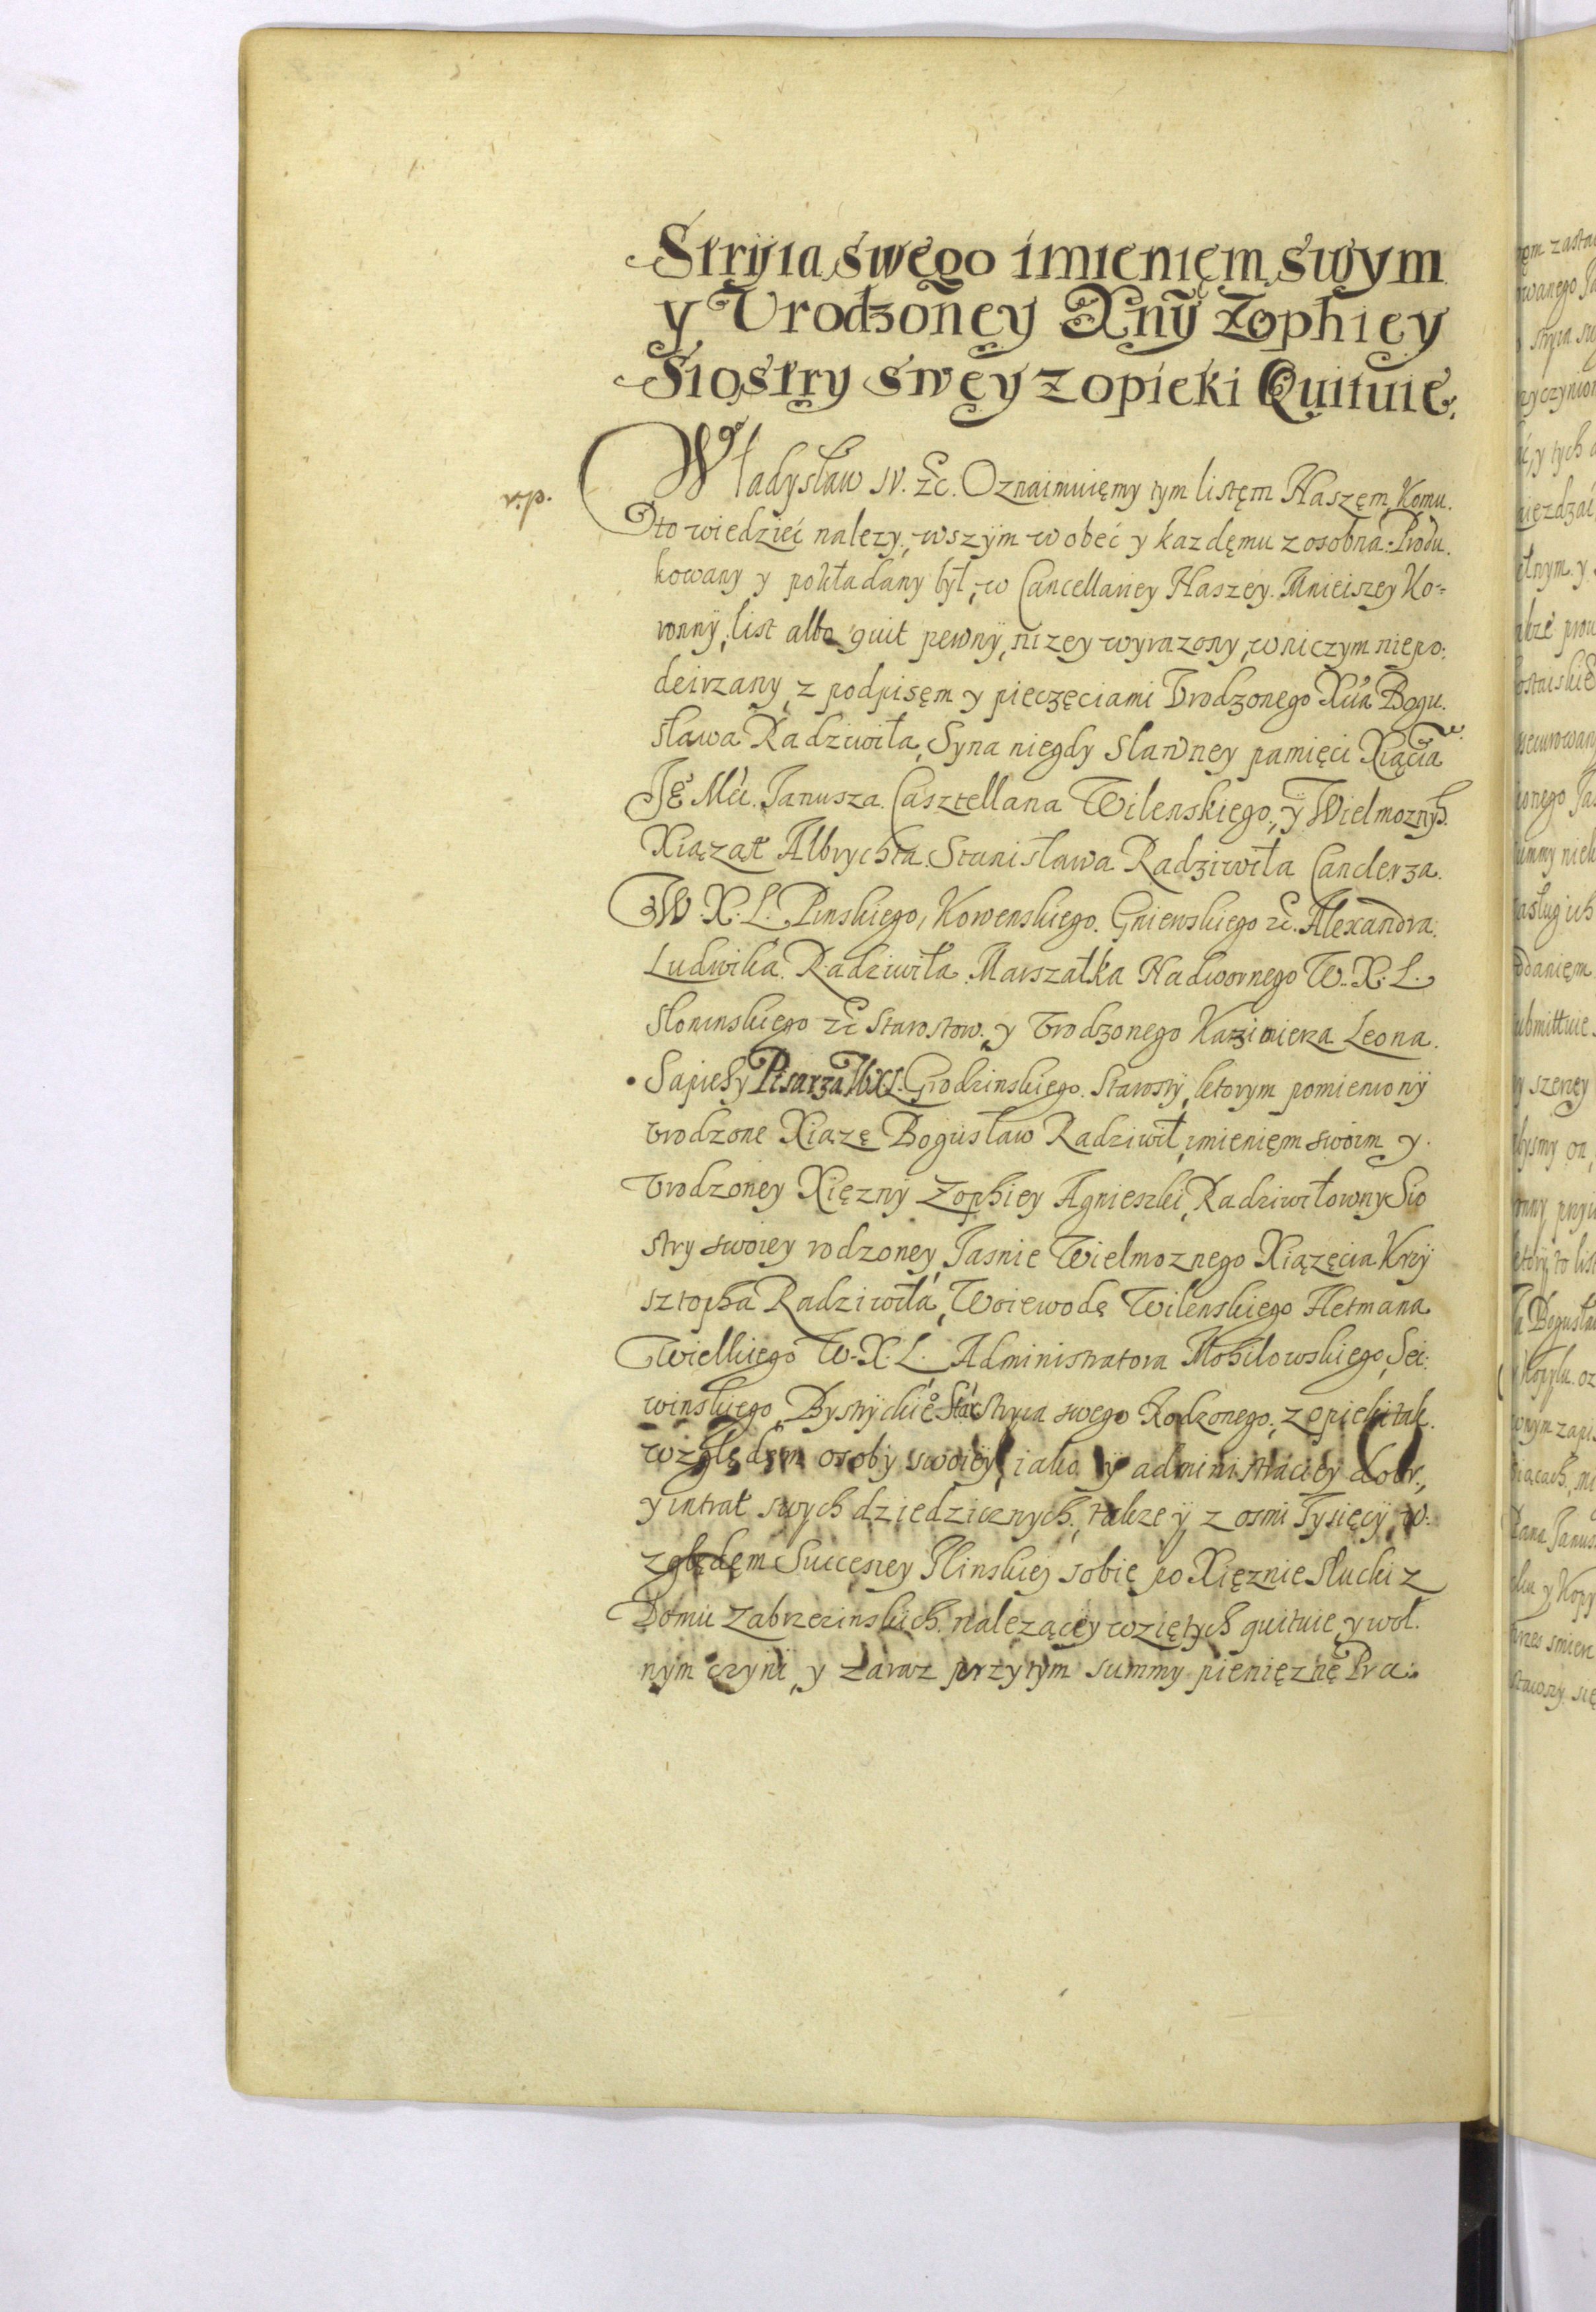 Stryia swego imienięm swym
y Vrodzoney Xny Zophiey
Siostry swęy z opieki Quituie.
Władysław IV. &c. Oznaimuięmy tym listęm Naszęm Komu.
to wiedzieć nalezy, wszÿm wobec y kazdęmu z osobna. Produ.
kowany y pokładany był, w Cancellariey Naszey. Mnieiszey Ko-
ronnÿ, list albo quit pewnÿ, nizey wyrazony, w niczym niepo.
deirzany, z podpisęm y pieczęciami Vrodzonego Xcia Bogu.
sława Radziwiła, Syna niegdy Slawney pamięci Xiącia
Je Mci. Janusza. Casztellana Wilenskiego, ÿ Wielmoznych.
Xiąząt Albrychta Stanisława Radziwiła Canclerza.
W. X. L. Pinskiego, Kowenskiego. Gniewskiego &c. Alexandra.
Ludwika. Radziwiła Marszałka Nadwornego W. X. L.
Słonimskiego &c Starostow, y Vrodzonego Kazimierza Leona.
Sapiehy Pisarza WXL. Grodzinskiego. Starosty, ktorym pomienionÿ
vrodzone Xiązę Bogusław Radziwił, imienięm swoim y.
Vrodzoney Xięznÿ Zophiey Agnieszki, Radziwiłowny Sio
stry swoiey rodzoney, Jasnie Wielmoznego Xiązęcia Krzÿ
sztopha Radziwiła, Woiewodę Wilenskiego Hetmana
Wielkiego W. X. L. Administratora Mohilowskiego, Sei.
winskiego, Bystrÿckie° Star Stryia swego Rodzonego, z opieki tak.
względem osoby swoiey, iako ÿ administraciey dobr.,
y intrat swych dziedzicznych, takze ÿ z osmi Tysięcÿ, w.
zględęm Successey Ilinskiey sobie po Xięznie Słucki z
Domu Zabrzezinskich. nalezącey wziętych quituie, y wol.
nym czyni, y zaraz przytym summy pienięznę Pra.